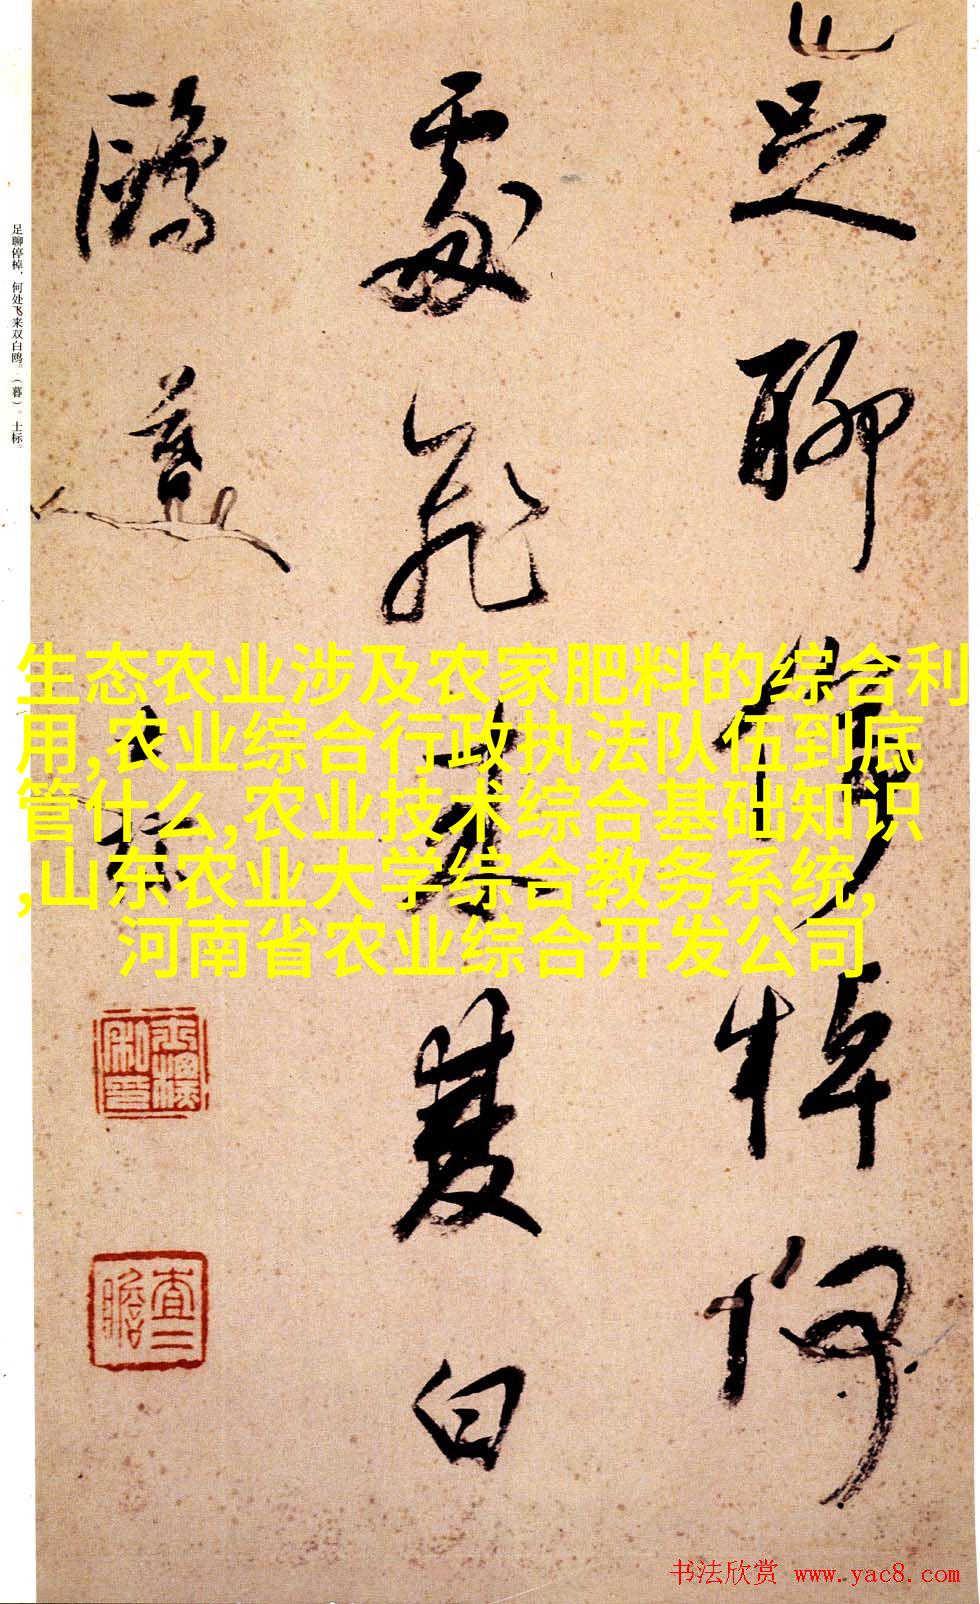 足聊停棹何
處飛来雙白
鸥暮
士标
足聊停棹，何处飞来双白鸥。（暮）。士标。
生态农业涉及农家肥料的综合利
用,农业综合行政执法队伍到底
管什么,农业技术综合基础知识
,山东农业大学综合教务系统,
河南省农业综合开发公司
查二
瞻
书法欣赏 www.yac8.com